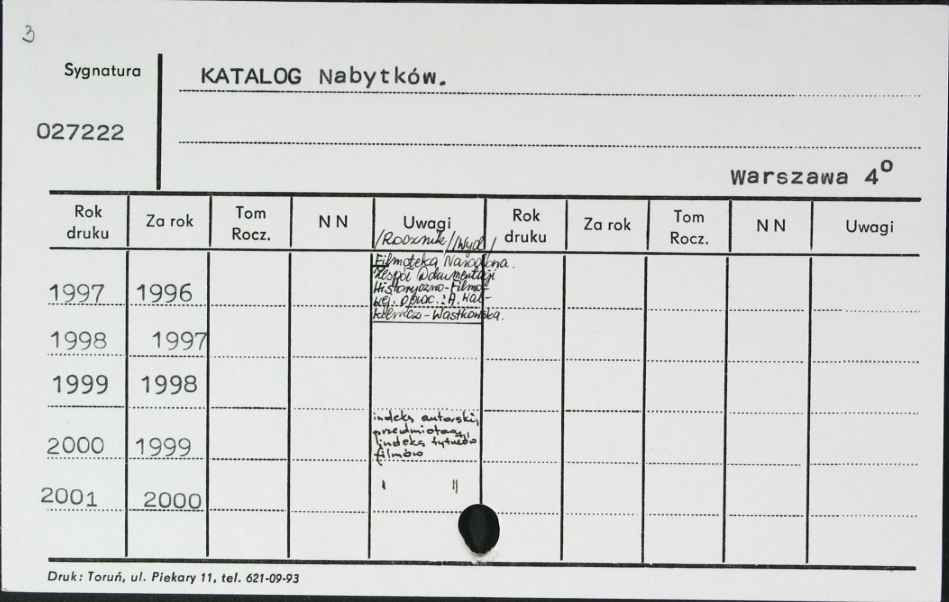 3
Sygnatura
KATALOG Nabytków.
027222
Warszawa 4⁰
Rok druku Za rok Tom Rocz. N N Uwagi Rok druku Za rok Tom Rocz. N N Uwagi
/Rocznik/ /Wyd/
Filmoteka Narodowa.
Zespół Dokumentacji
Historyczno-Filmo-
wej. Oprac.: A.
1997 1996
1998 1997
1999 1998
indeks autorski,
przedmiotowy,
indeks tytułów
filmów
2000 1999
2001 2000 " "
Druk: Toruń, ul. Piekary 11, tel. 621-09-93